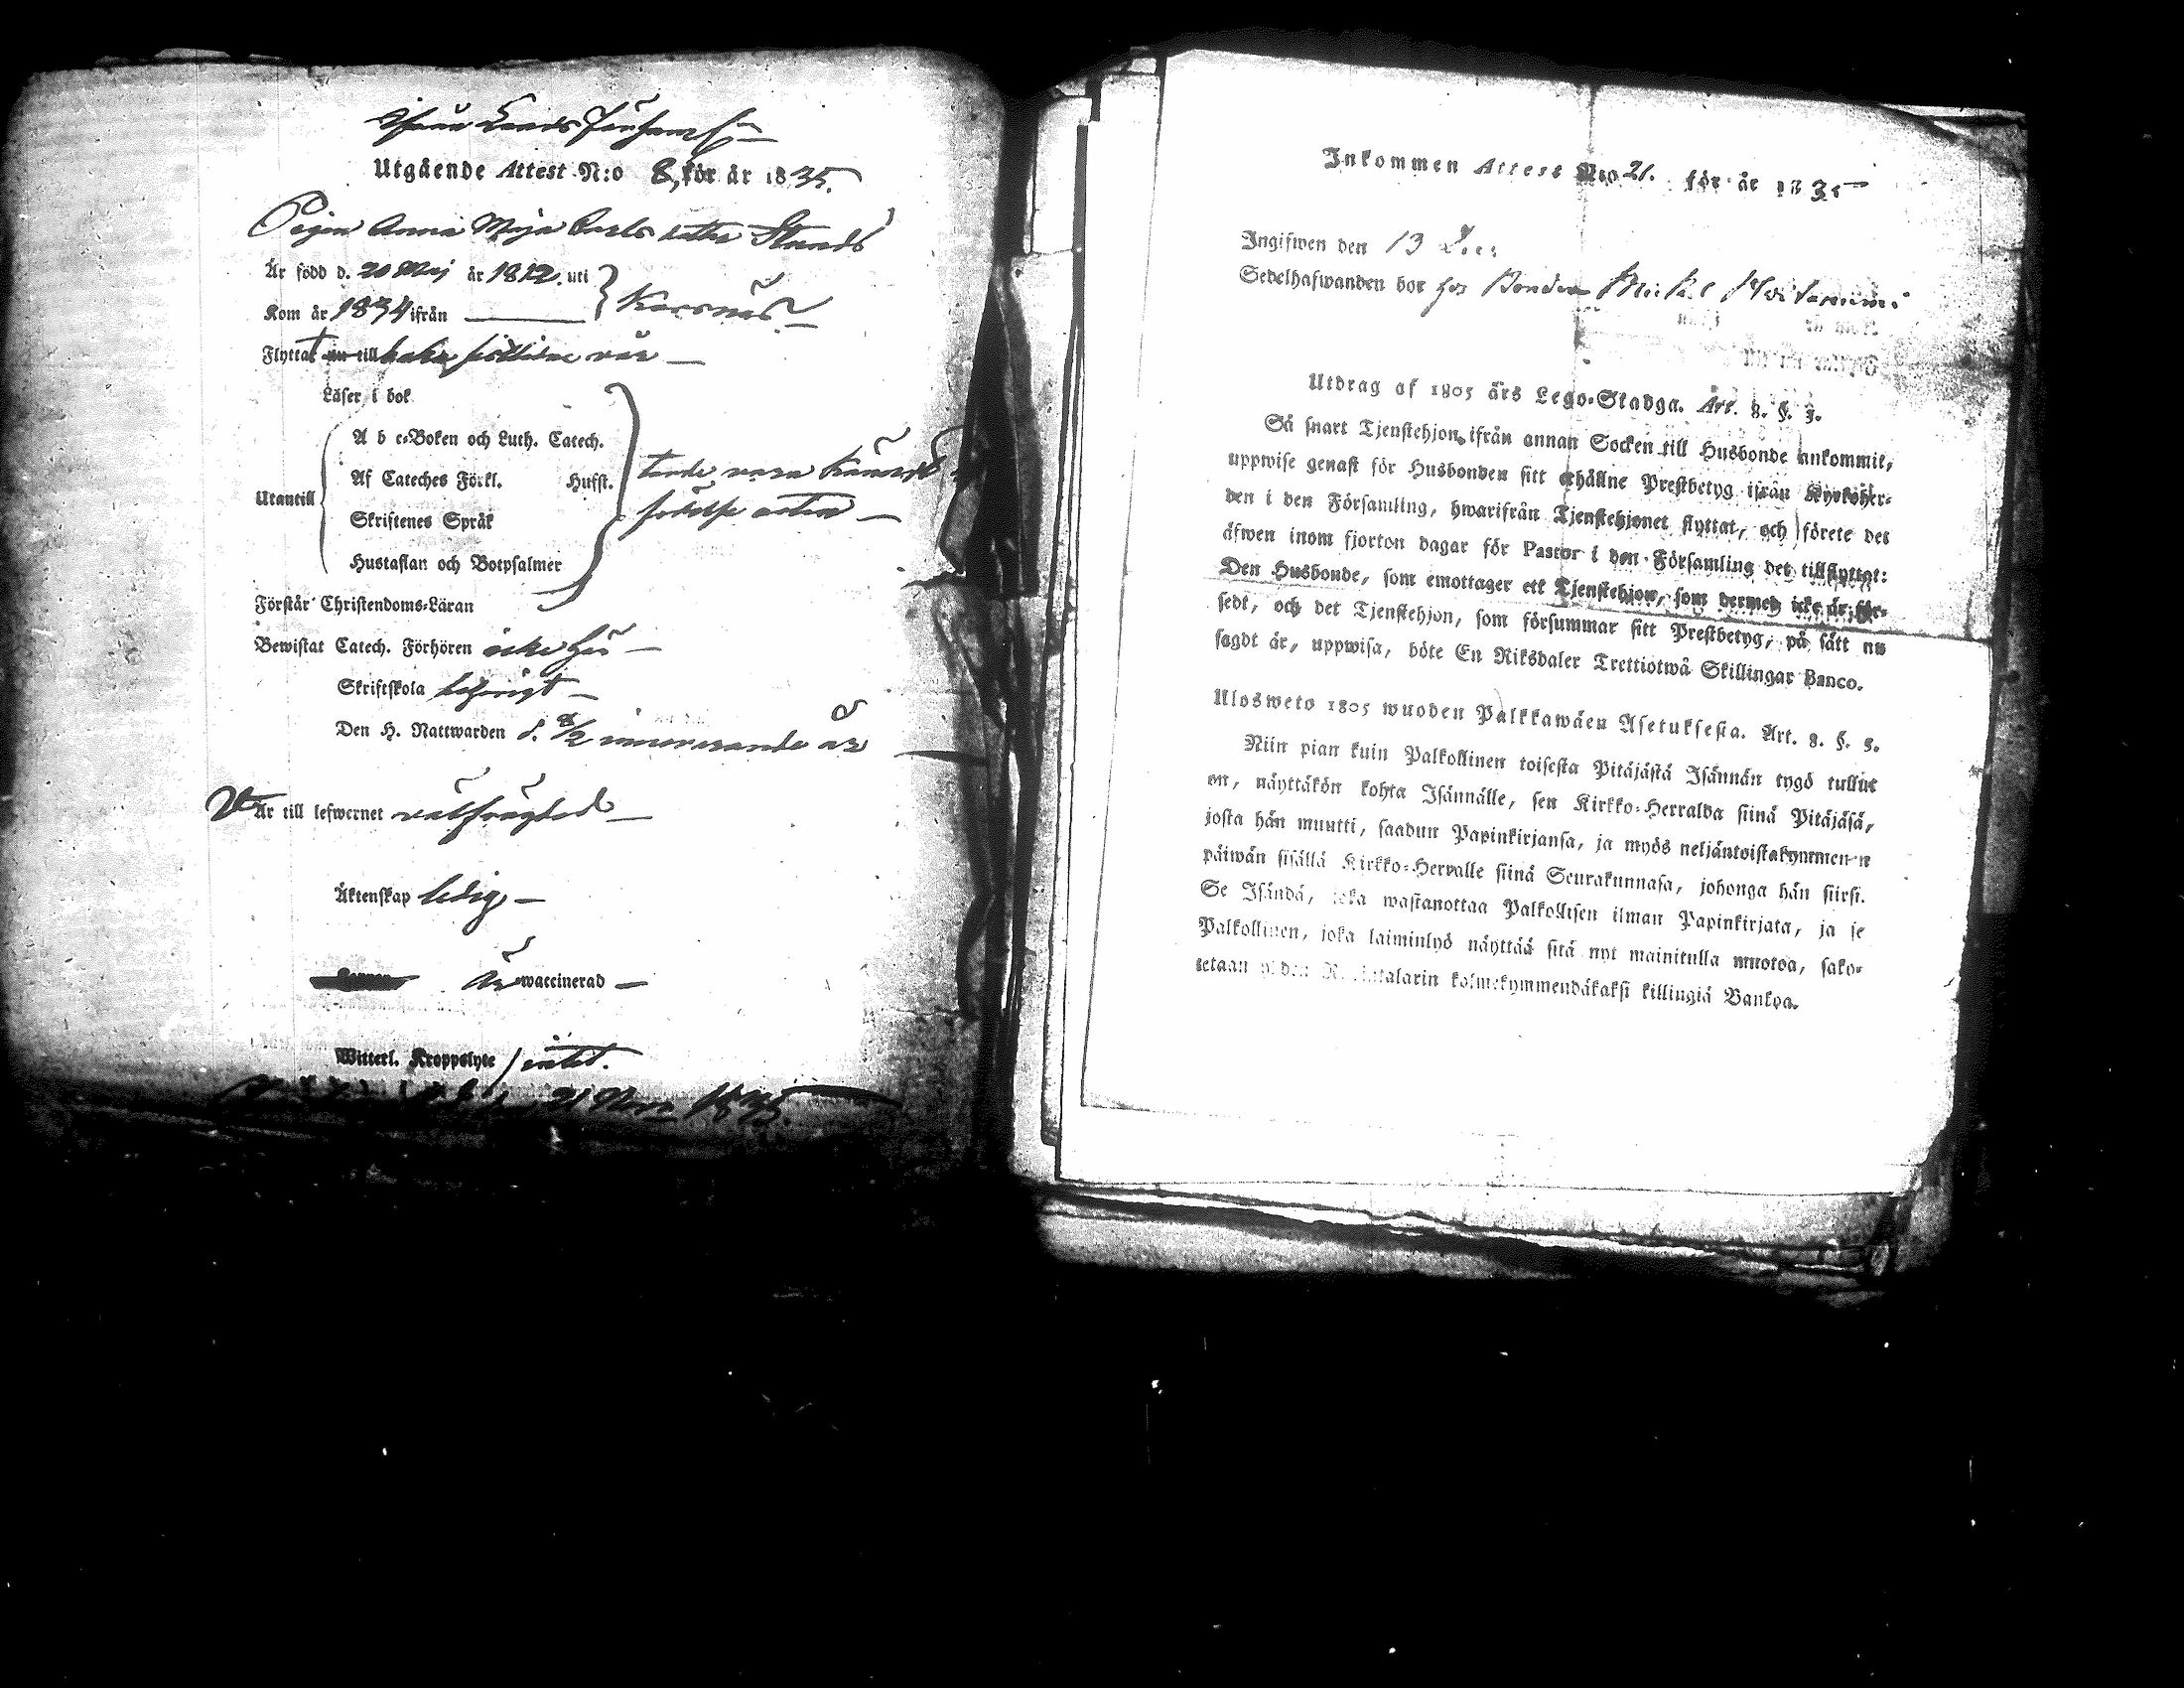 Utgående Attest N:o 8, för år 1835.
Pigan Anna Maja Carls dotter
Är född d. 20 Maj år 1812. uti
Kom år 1834 ifrån
Flyttat till
Läser i bok
A b c=Boken och Luth. Catech.
Af Cateches Förkl. Husst.
Utantill
Skriftenes Språk
Hustaflan och Botpsalmer
Förstår Christendoms=Läran
Bewistat Catech. Förhören
Skriftskola
Den H. Nattwarden d. 8/2 innevarande år
Är till lefwernet välfrägdad
Äktenskap ledig
Är waccinerad
Witterl. Kroppslyte intet.
21 Nov. 1835.
Inkommen Attest N:o 21. för år 1835
Ingifwen den 13 Dec:
Sedelhafwanden bor hos Bonden Mickel
Utdrag af 1805 års Lego=Stadga. Art. 8. §. 3.
Så snart Tjenstehjon ifrån annan Socken till Husbonde ankommit,
uppwise genast för Husbonden sitt erhållne Prestbetyg ifrån Kyrkoher=
den i den Församling, hwarifrån Tjenstehjonet flyttat, och förete det
äfwen inom fjorton dagar för Pastor i den Församling det tillflyttat:
Den Husbonde, som emottager ett Tjenstehjon, som dermed icke är för=
sedt, och det Tjenstehjon, som försummar sitt Prestbetyg, på sätt nu
sagdt är, uppwisa, böte En Riksdaler Trettiotwå Skillingar Banco.
Ulosweto 1805 wuoden Palkkawäen Asetuksesta. Art. 8. §. 3.
Niin pian kuin Palkollinen toisesta Pitäjästä Isännän tygö tullut
on, näyttäkön kohta Isännälle, sen Kirkko=Herralda siinä Pitäjäsä,
josta hän muutti, saadun Papinkirjansa, ja myös neljäntoistakymmenen
päiwän sisällä Kirkko=Herralle siinä Seurakunnasa, johonga hän siirsi.
Se Isändä, joka wastanottaa Palkollisen ilman Papinkirjata, ja se
Palkollinen, joka laiminlyö näyttää sitä nyt mainitulla muotoa, sako=
tetaan kolmekymmendäkaksi killingiä Bankoa.